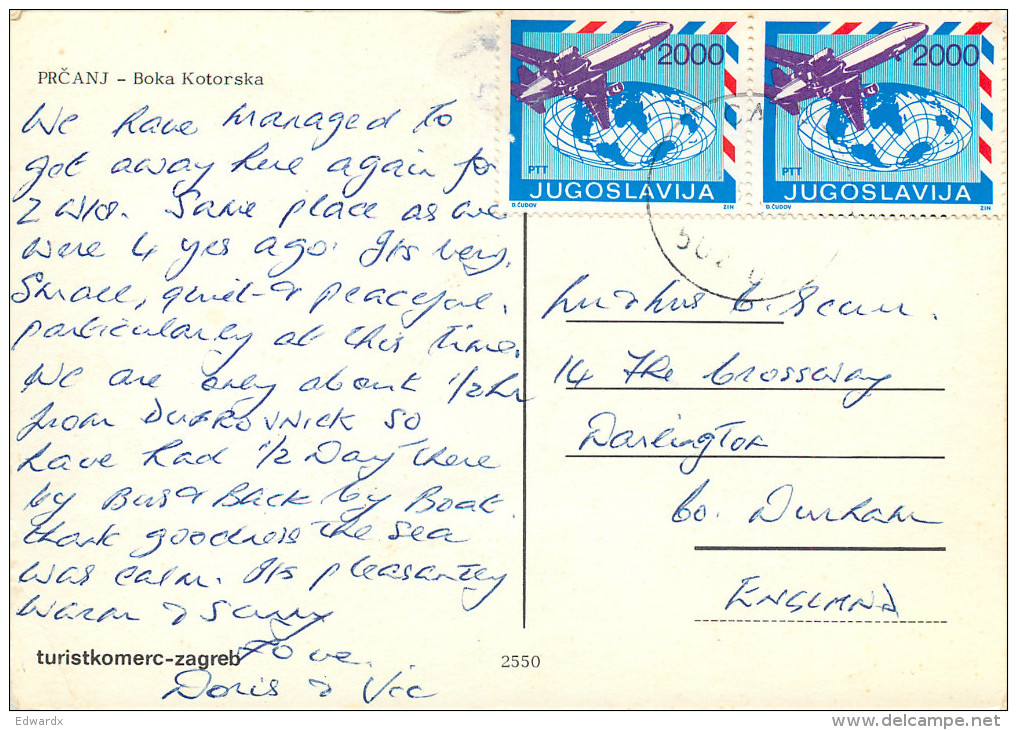 PRČANJ – Boka Kotorska
We have managed to
get away here again for
2 wks. Same place as we
were 4 yrs ago. Its very
Small, quiet & peaceful,
particularly at this time.
We are only about 1/2 hr
from DUBROVNICK so
have had 1/2 Day there
by Bus & Back by Boat.
thank goodness the sea
was calm. Its pleasantly
warm & sunny
Love.
Doris & Vic
turistkomerc-zagreb
2550
2000
PTT
JUGOSLAVIJA
D.ČUDOV ZIN
2000
PTT
JUGOSLAVIJA
D.ČUDOV ZIN
14 The Crossway
Darlington
Co. Durham
ENGLAND
Edwardx
delcampe.net